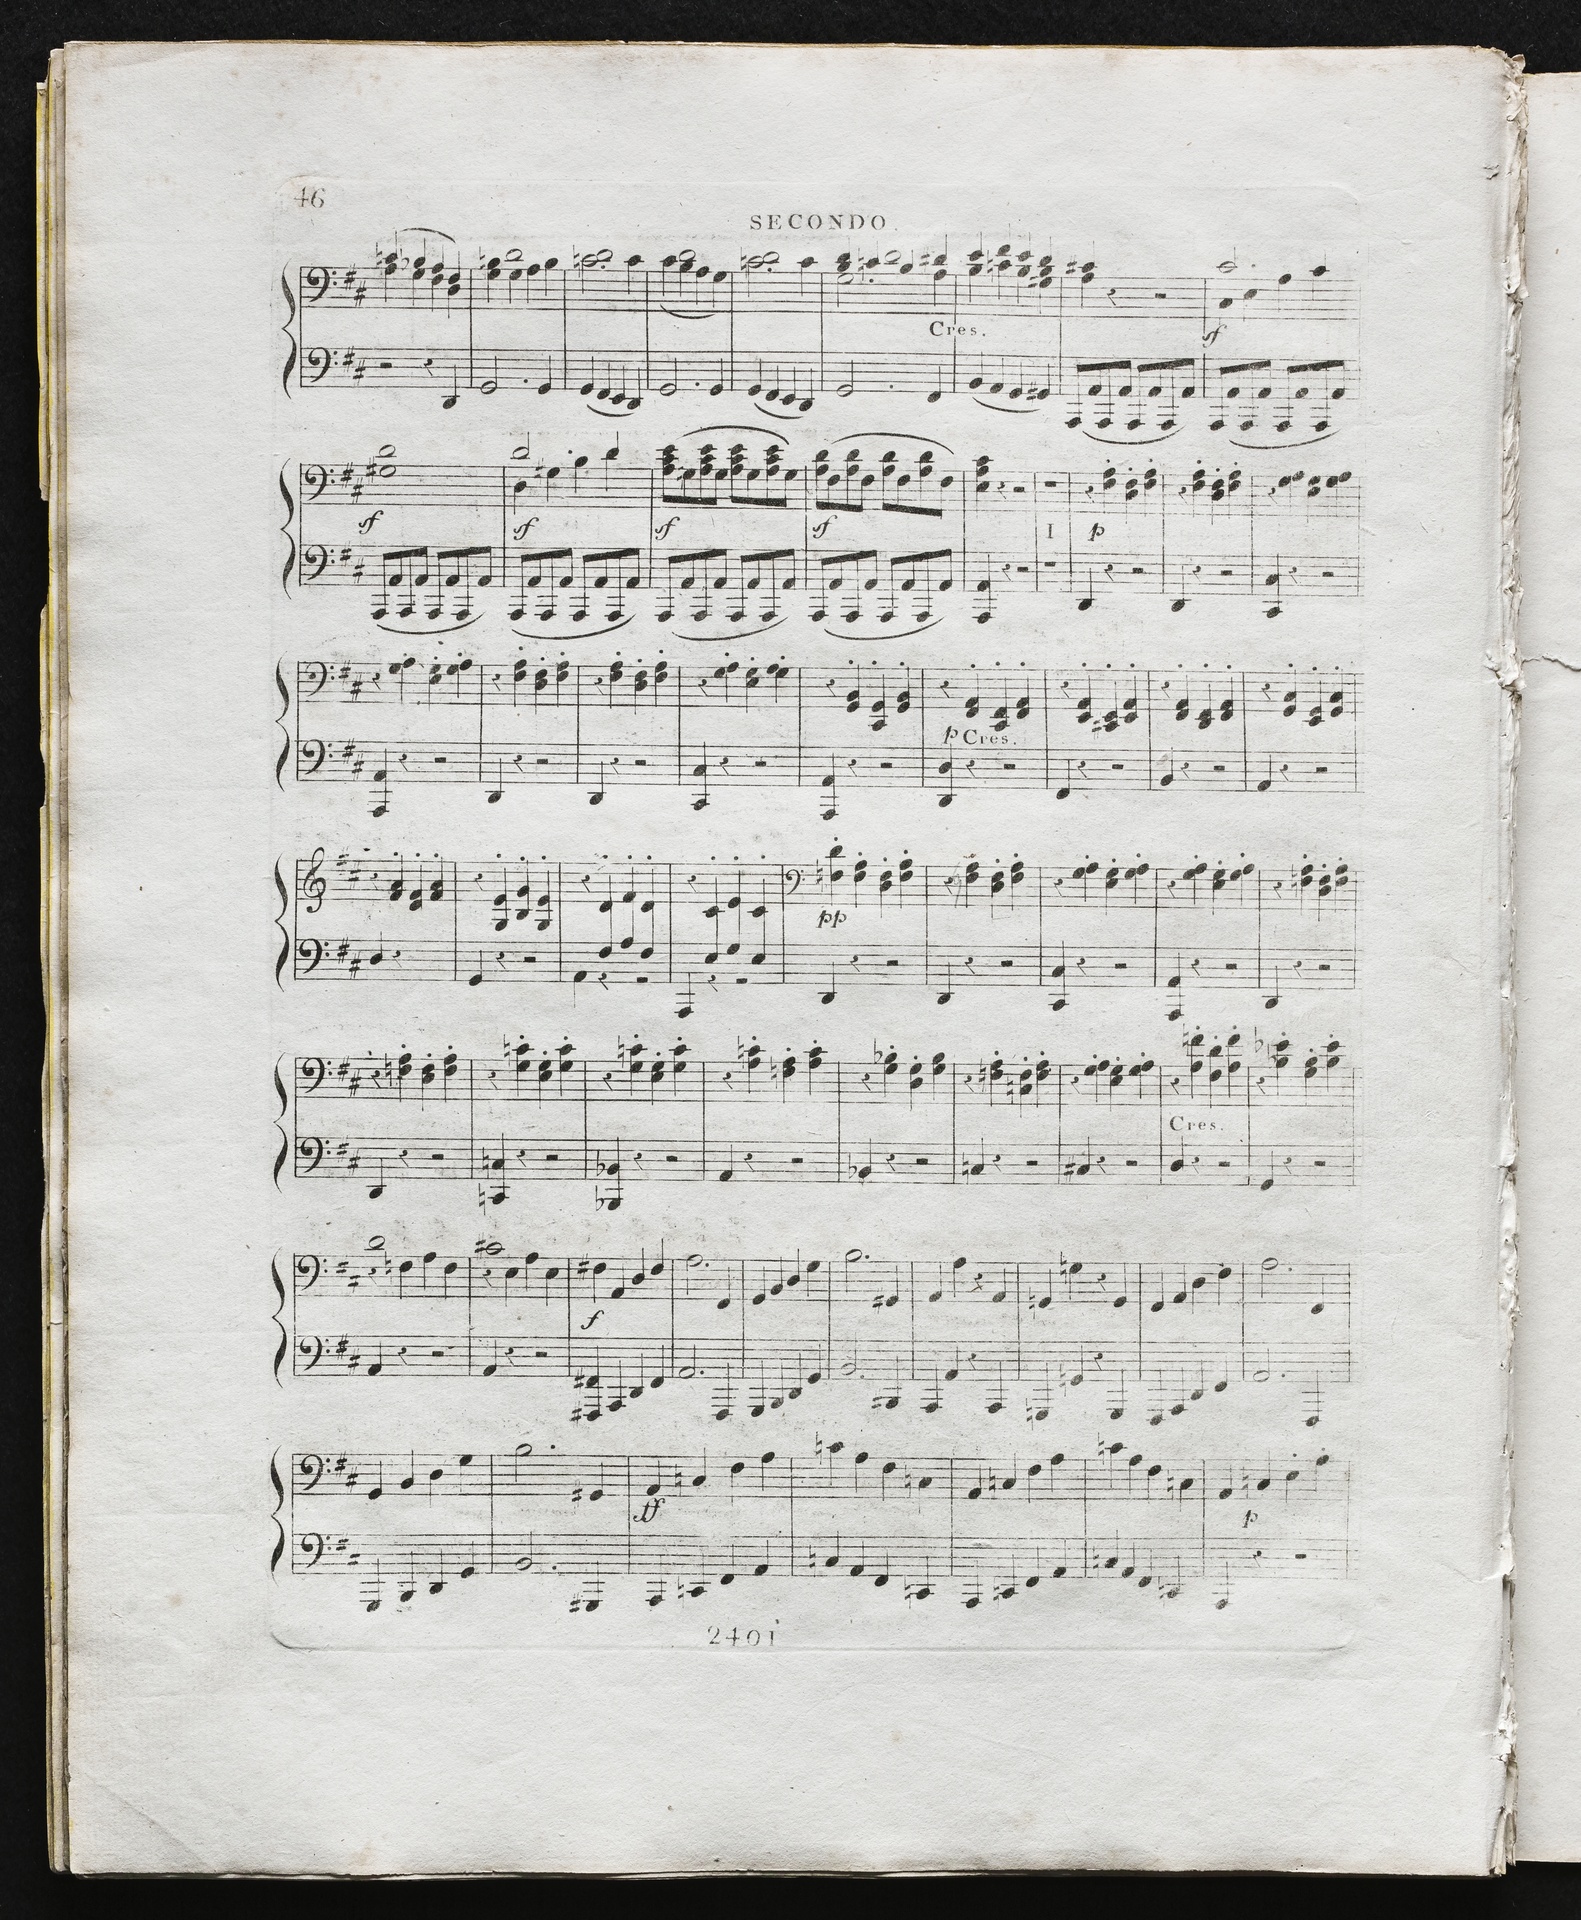 46
SECONDO.
Cres.
sf
sf sf sf sf
1 p
p Cres.
pp
Cres.
f
ff p
2401